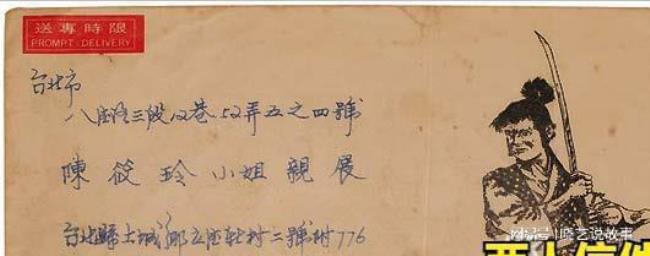 送專時限
PROMPT · DELIVERY
台北市
八德路三段12巷52弄五之四號
陳筱玲小姐親展
台北縣土城鄉立德社村二號附776
晓艺说故事